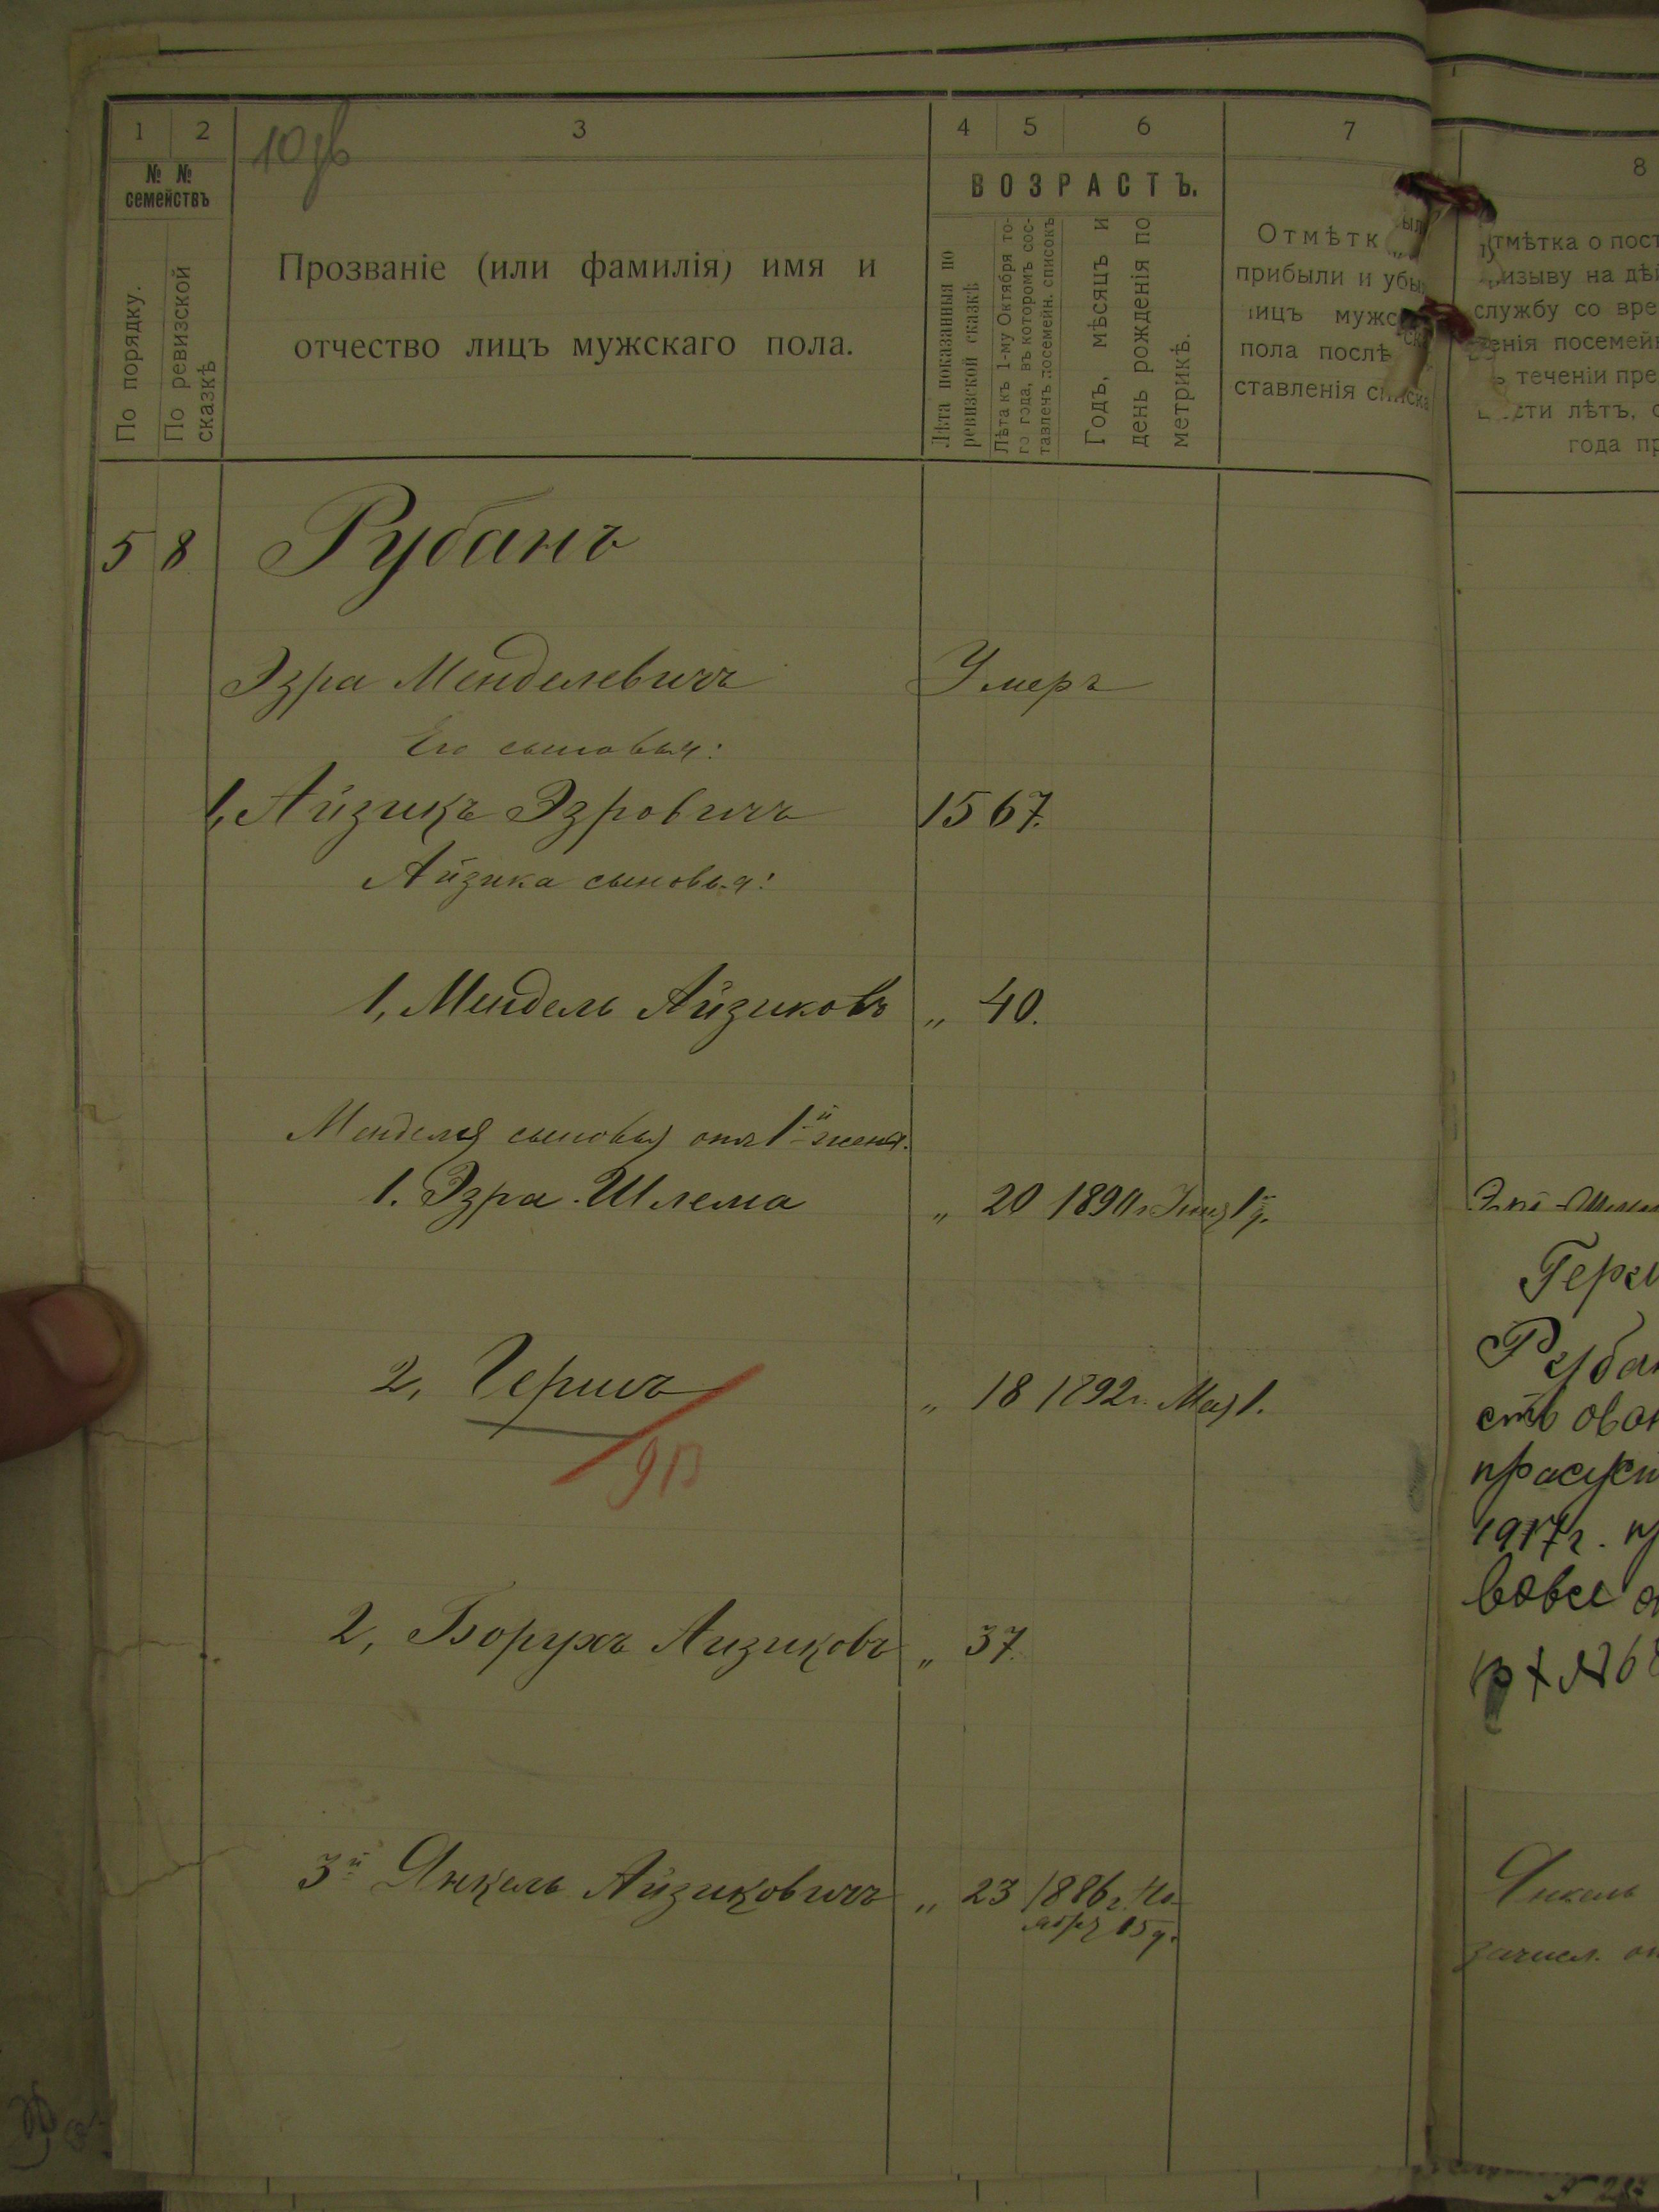 1 2 3 4 5 6 7 8
№ № семействъ
По порядку.
По ревизской сказкѣ
Прозваніе (или фамилія) имя и
отчество лицъ мужскаго пола.
ВОЗРАСТЪ.
Лѣта показанныя по
ревизской сказкѣ
Лѣта къ 1-му Октября то-
го года, въ которомъ сос-
тавленъ посемейн. списокъ
Годъ, мѣсяцъ и
день рожденія по
метрикѣ.
Отмѣтк
прибыли и убы
лицъ мужс
пола послѣ
ставленія списка
тмѣтка о пост
изыву на дѣй
службу со вре
енія посемей
теченіи пре
сти лѣтъ, с
года пр
5 8 Рубанъ
Эзра Менделевичъ Умеръ
Его сыновья:
1, Айзикъ Эзровичъ 15 67.
Айзика сыновья:
1, Мендель Айзиковъ „ 40.
Менделя сыновья отъ 1й жены.
1. Эзра-Шлема „ 20 1890 г. 1
2, Гершъ „ 18 1892 г. Мая 1.
2, Борухъ Айзиковъ „ 37.
3й Янкель Айзиковичъ „ 23 1886 г. Но-
ября 15 д.
Рубан
1917 г.
Янкель
зачисл.